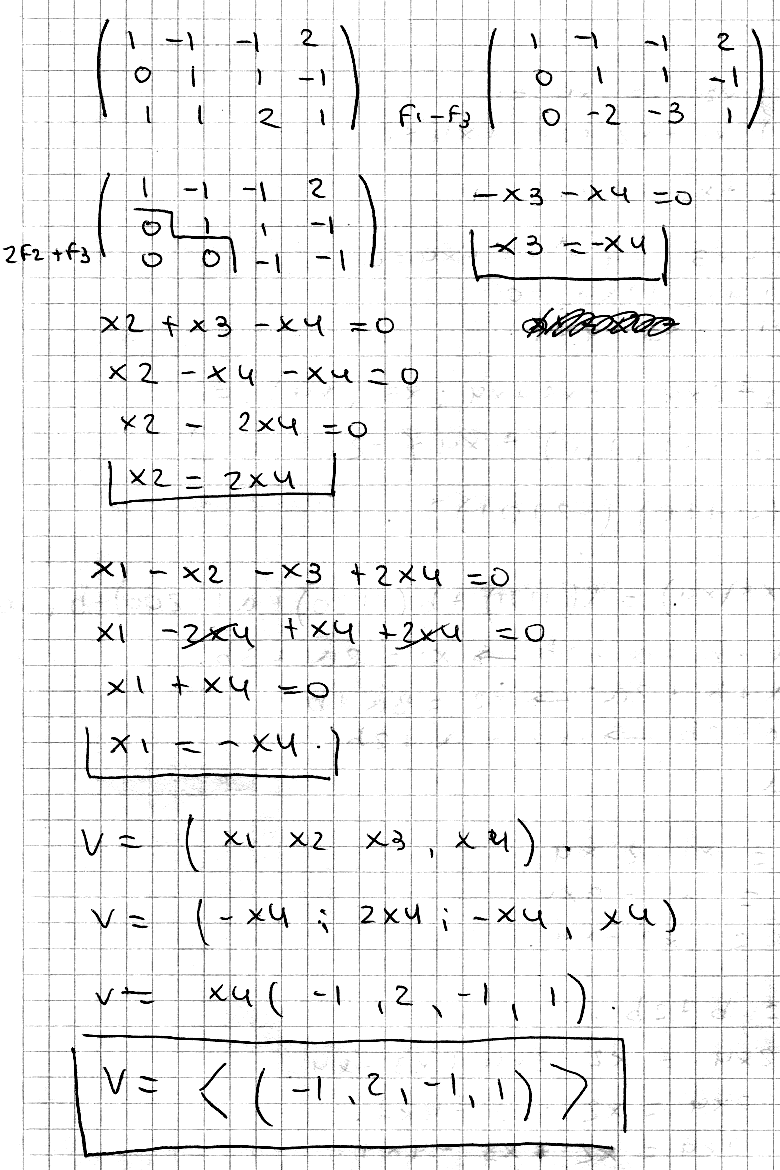 1 -1 -1 2   1 -1 -1 2
0 1 1 -1   0 1 1 -1
1 1 2 1   F1-F3   0 -2 -3 1
1 -1 -1 2
0 1 1 -1
2F2+F3   0 0 -1 -1
-x3 -x4 =0
x3 =-x4
x2 +x3 -x4 =0
x2 -x4 -x4 =0
x2 - 2x4 =0
x2 = 2x4
x1 - x2 -x3 +2x4 =0
x1 -2x4 +x4 +2x4 =0
x1 +x4 =0
x1 = -x4.
V= (x1 x2 x3, x4).
V= (-x4; 2x4; -x4, x4)
V= x4(-1, 2, -1, 1).
V= <(-1, 2, -1, 1)>